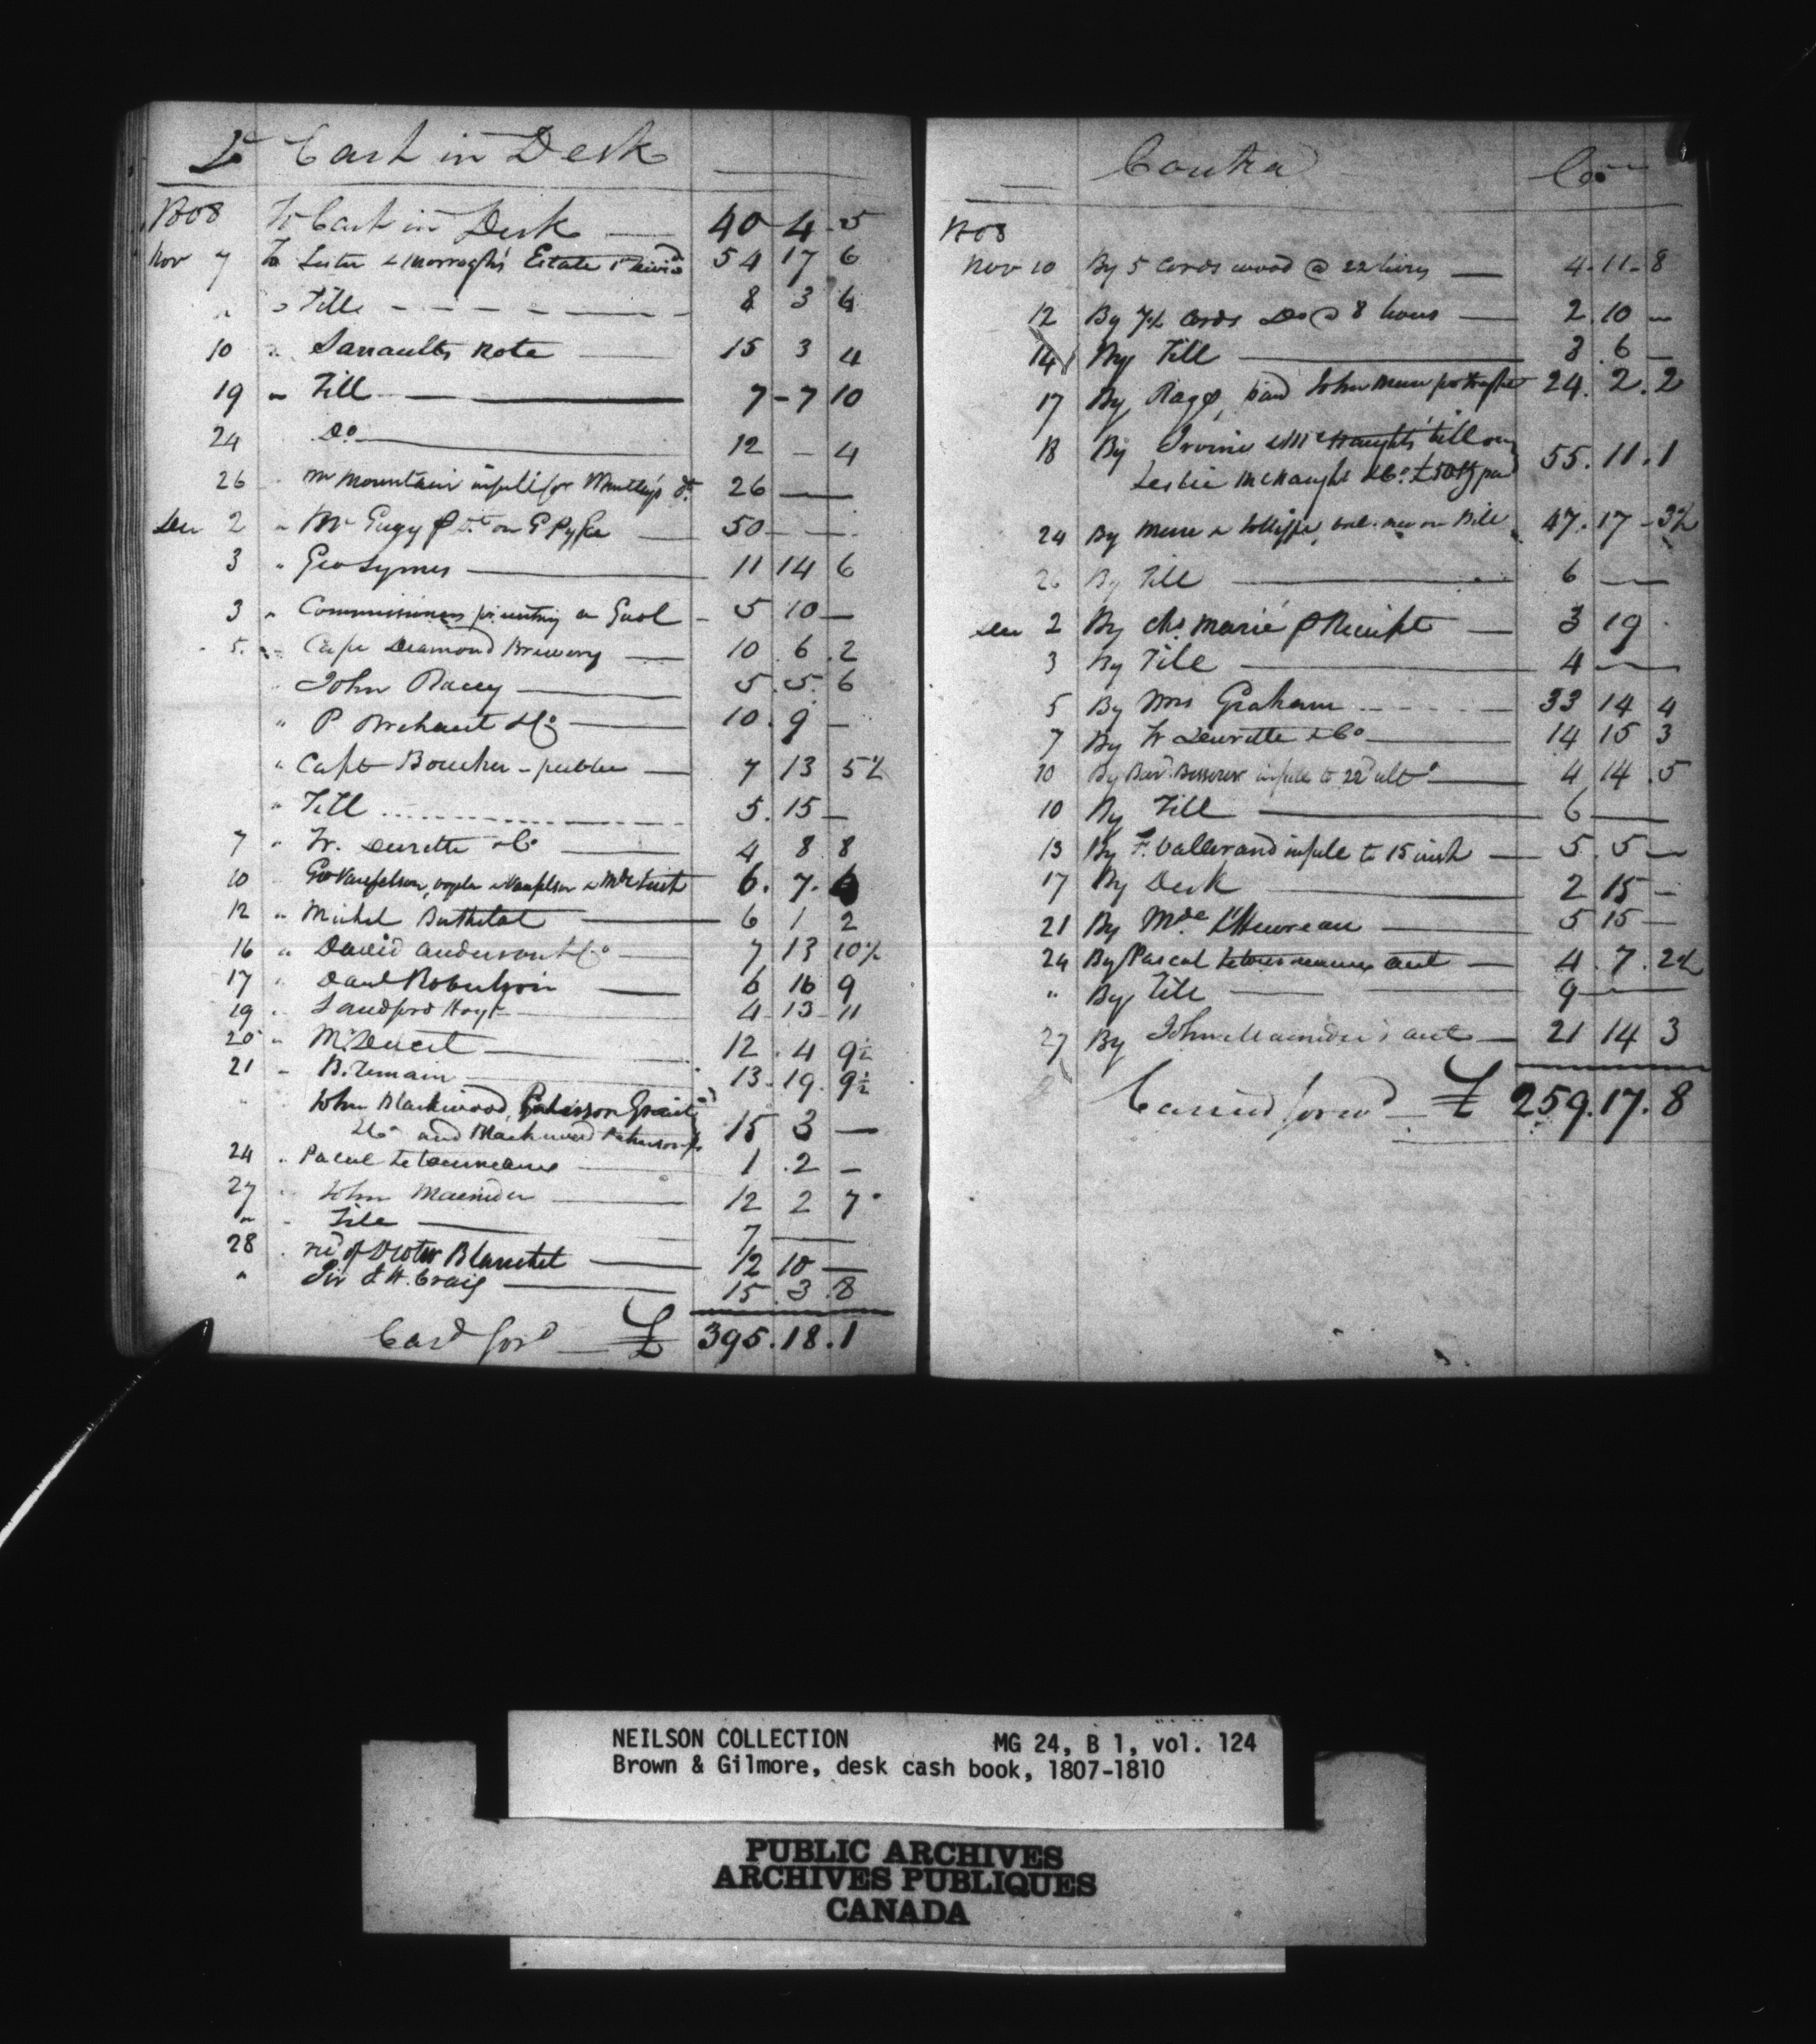 Dr Cash in Desk
1808 To Cash in Desk 40 4 5
Nov 7 To Lester & Morrogh's Estate 1st Divid 54 17 6
" " Till 8 3 6
10 " Sarraults Note 15 3 4
19 " Till 7 7 10
24 Do 12 - 4
26 Mr Mountain in full for 26 - -
Dec 2 " Mr Gugy on G Pyke 50 - -
3 " Geo Symes 11 14 6
3 " Commissioners for erecting a Gaol 5 10 -
5 " Cape Diamond Brewery 10 6 2
John Racey 5 5 6
" P Brehaut & Co 10 9 -
" Capt Boucher - 7 13 5½
" Till 5 15 -
7 " Fr. Durette & Co 4 8 8
10 Geo Vanfelson, 6 7 6
12 " Michel Berthelot 6 1 2
16 " David Anderson & Co 7 13 10½
17 " Danl Robertson 6 16 9
19 " Sandford Hoyt 4 13 11
20 " Mr 12 4 9½
21 " B. Tremain 13 19 9½
John Blackwood, Paterson Grant
& Co and Blackwood Paterson & Co 15 3 -
24 " Pascal Letourneaux 1 2 -
27 " John Macnider 12 2 7
" " Till 7 - -
28 " recd of Doctor Blanchet 12 10 -
" Sir J. H. Craig 15 3 8
Card ford £ 395.18.1
Contra Cr
1808
Nov 10 By 5 Cords wood @ 22 livres 4.11.8
12 By 7½ Cords Do @ 8 livres 2.10 -
14 By Till 3.6 -
17 By paid John Mure 24.2.2
18 By Irvine & McNaught's bill on
Leslie McNaught & Co. 55.11.1
24 By Mure & Jolliffe, on Bill 47.17.3½
26 By Till 6 - -
Dec 2 By Chs Marié p Receipt 3 19
3 By Till 4 - -
5 By Mrs Graham 33 14 4
7 By Fr Durette & Co 14 15 3
10 By in full to 22d ulto 4 14.5
10 By Till 6 - -
13 By F. Vallerand in full to 15 inst 5.5 -
17 By Desk 2 15 -
21 By Mde L'Heureau 5 15 -
24 By Pascal Letourneaux acct 4.7.2½
" By Till 9 - -
27 By John Macnider's acct 21 14 3
Carried forwd £ 259.17.8
NEILSON COLLECTION MG 24, B 1, vol. 124
Brown & Gilmore, desk cash book, 1807-1810
PUBLIC ARCHIVES
ARCHIVES PUBLIQUES
CANADA